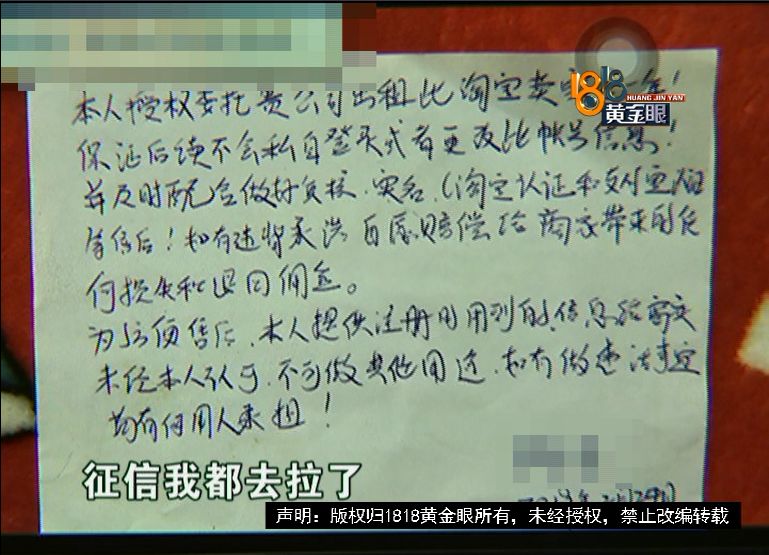 本人授权委托贵公司出租此淘宝卖
保证后续不会私自登入或者更改此帐号信息!
并及时配合做好复核、实名、(淘宝认证和支付宝认证
等售后!如有违背承诺自愿赔偿给商家带来的任
何损失和退回佣金。
为方便售后,本人提供注册时用到的信息给商家
未经本人认可,不可做其他用途,如有做违法事宜
均有使用人承担!
1818
HUANG JIN YAN
黄金眼
征信我都去拉了
声明:版权归1818黄金眼所有,未经授权,禁止改编转载